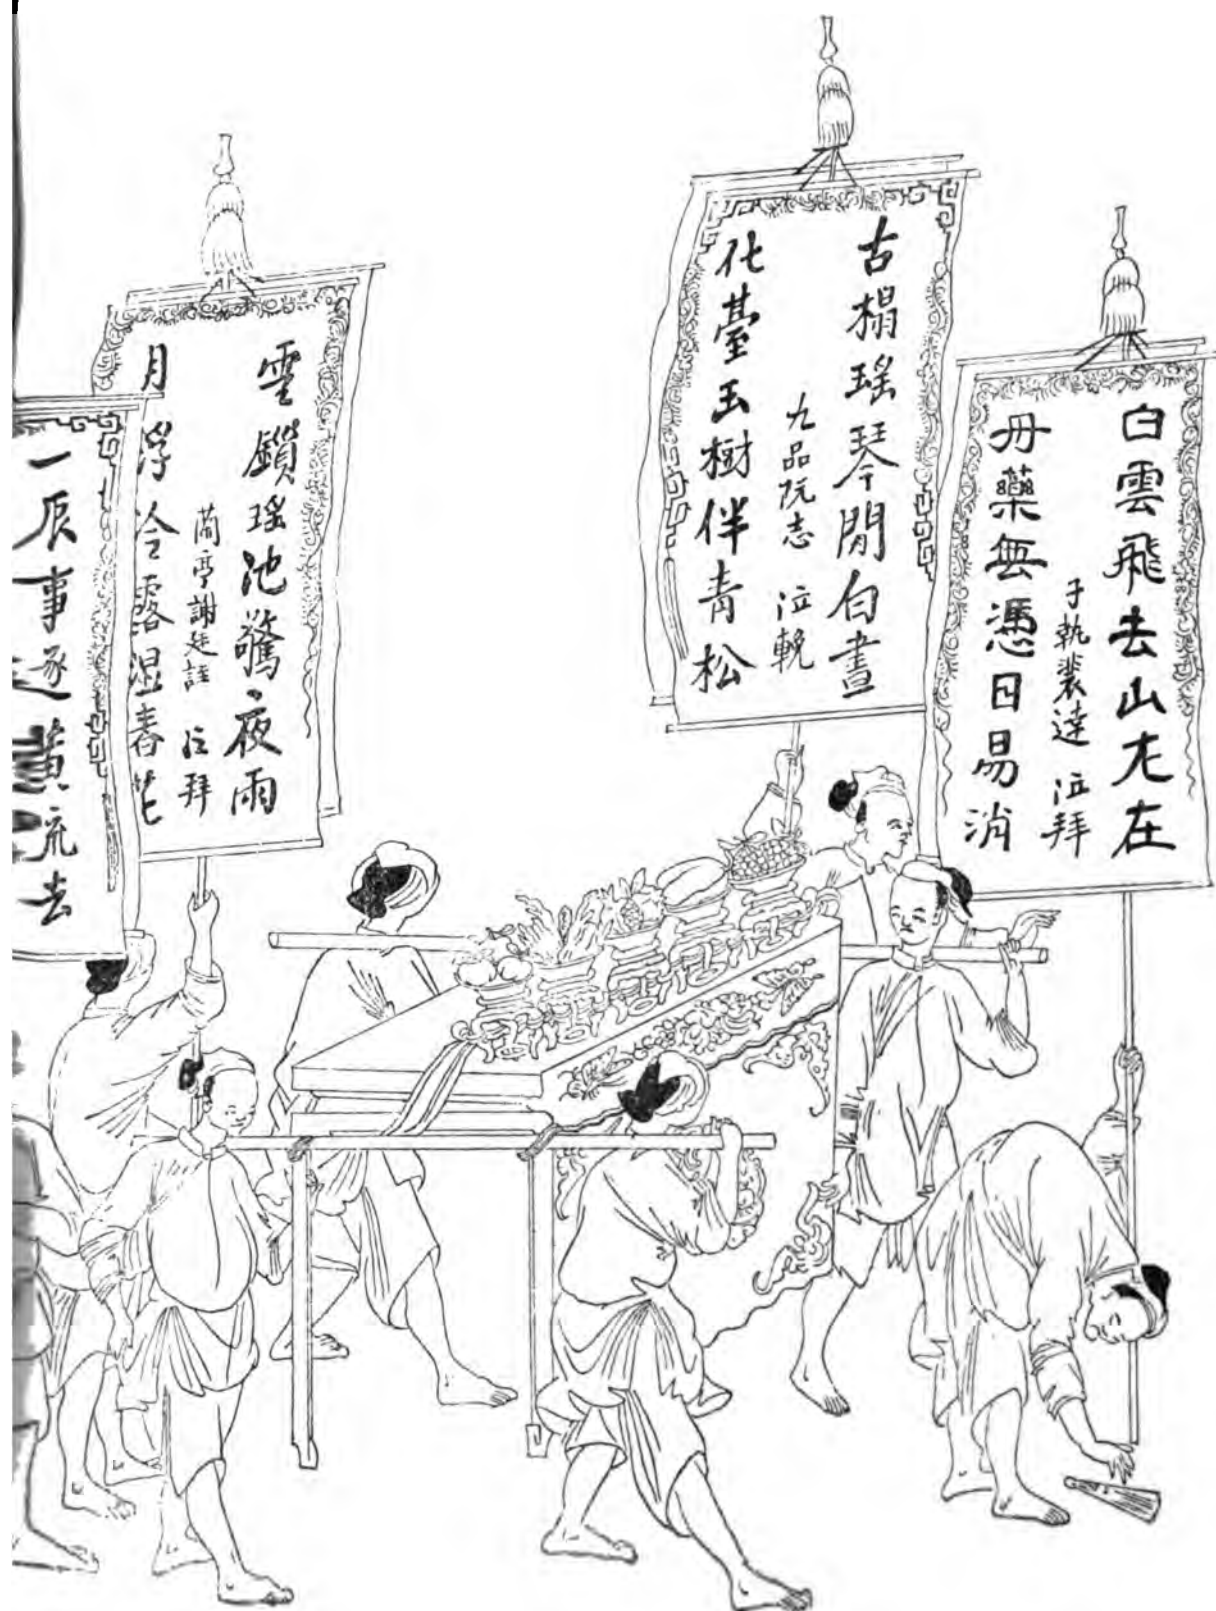 白雲飛去山尤在
子執裴達 泣拜
丹藥無憑日易消
古榻瑤琴閒白晝
九品阮志 泣輓
化臺玉樹伴青松
雲鎖瑤池驚夜雨
蘭亭謝廷註 泣拜
月浮冷露湿春花
一辰事逐黄流去